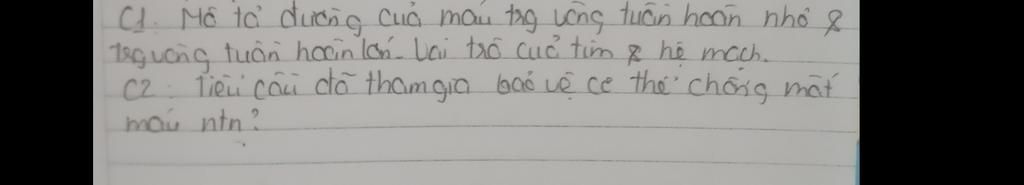 C1. Mô tả đường của máu trg vòng tuần hoàn nhỏ &
trg vòng tuần hoàn lớn. Vai trò của tim & hệ mạch.
C2: Tiểu cầu đã tham gia bảo vệ cơ thể chống mất
máu ntn?